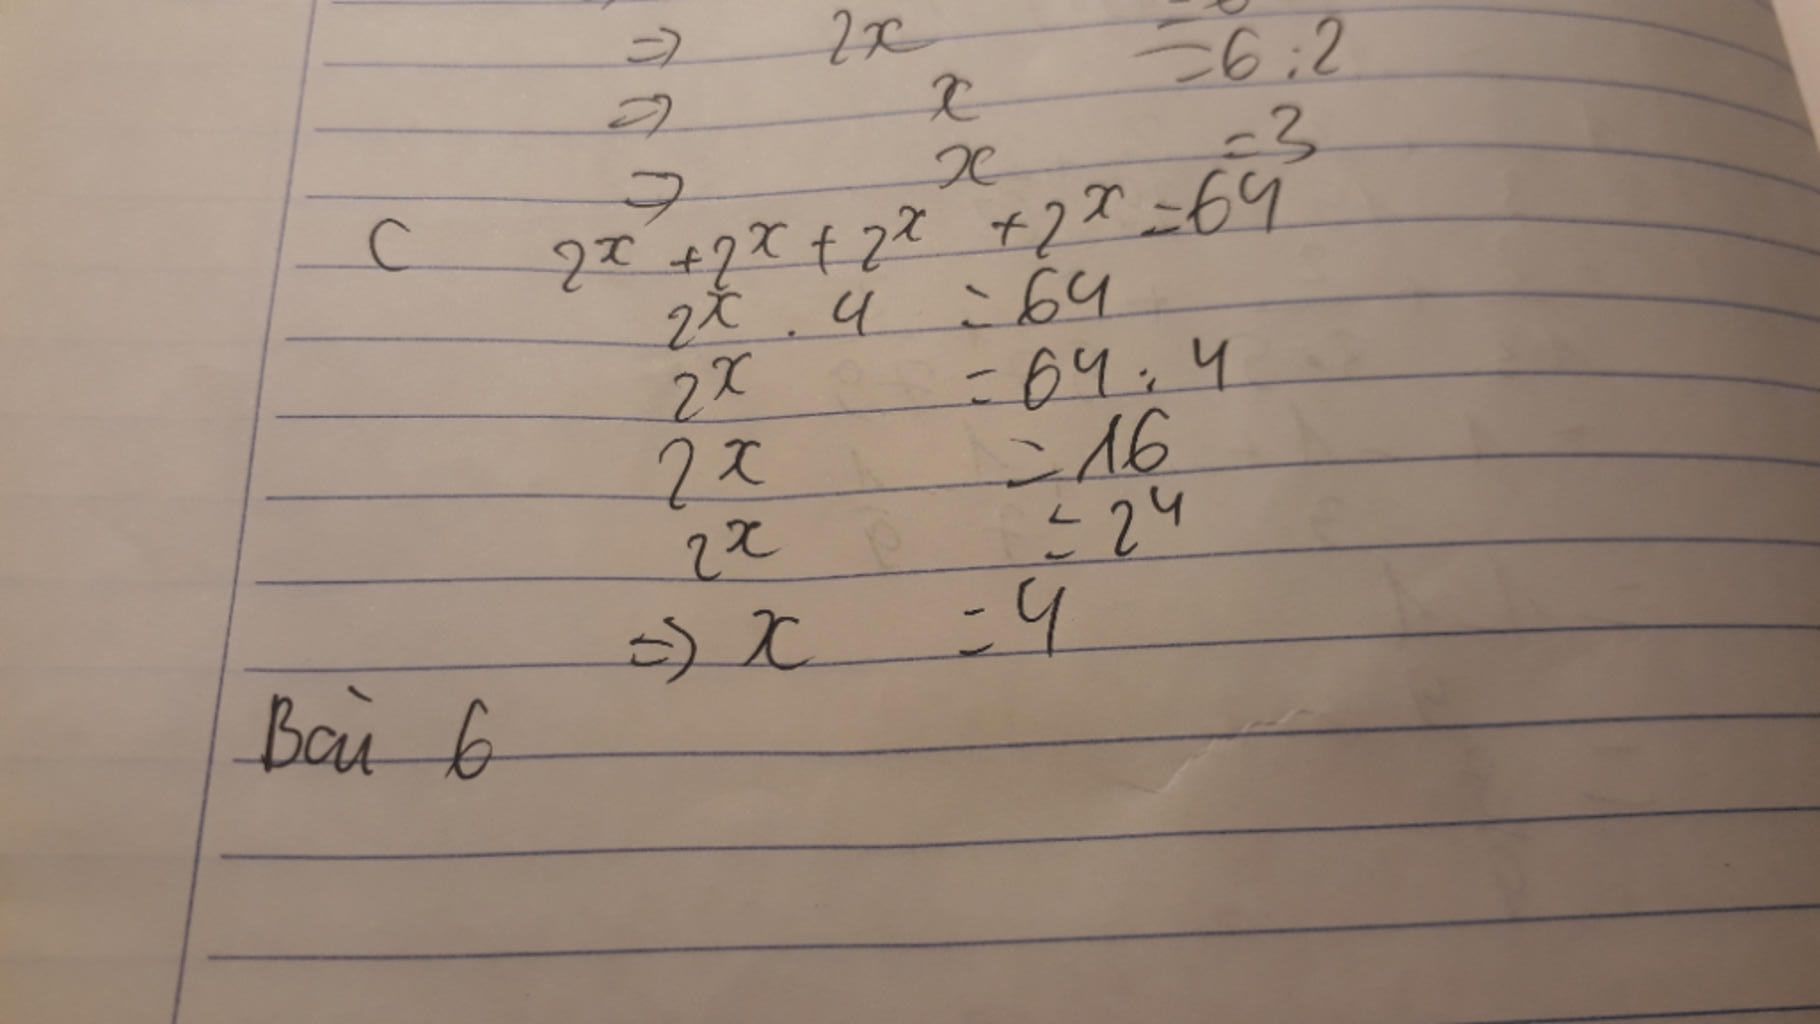 ⇒ 2x = 6
⇒ x = 6 : 2
⇒ x = 3
C 2ˣ + 2ˣ + 2ˣ + 2ˣ = 64
2ˣ . 4 = 64
2ˣ = 64 : 4
2ˣ = 16
2ˣ = 2⁴
⇒ x = 4
Bài 6